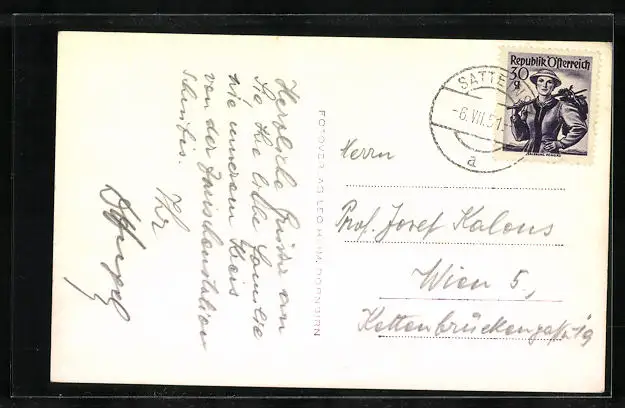 Herzliche Grüße an
Sie Ihre liebe Familie
wie unserem Kreis
von der Zwischenstation
Ihr
FOTOVERLAG LEO H DORNBIRN
Republik Österreich
30 g
SATTE
-6.VII.51.
a
Herrn
Prof. Josef Kalous
Wien 5.,
Kettenbrückengasse 19